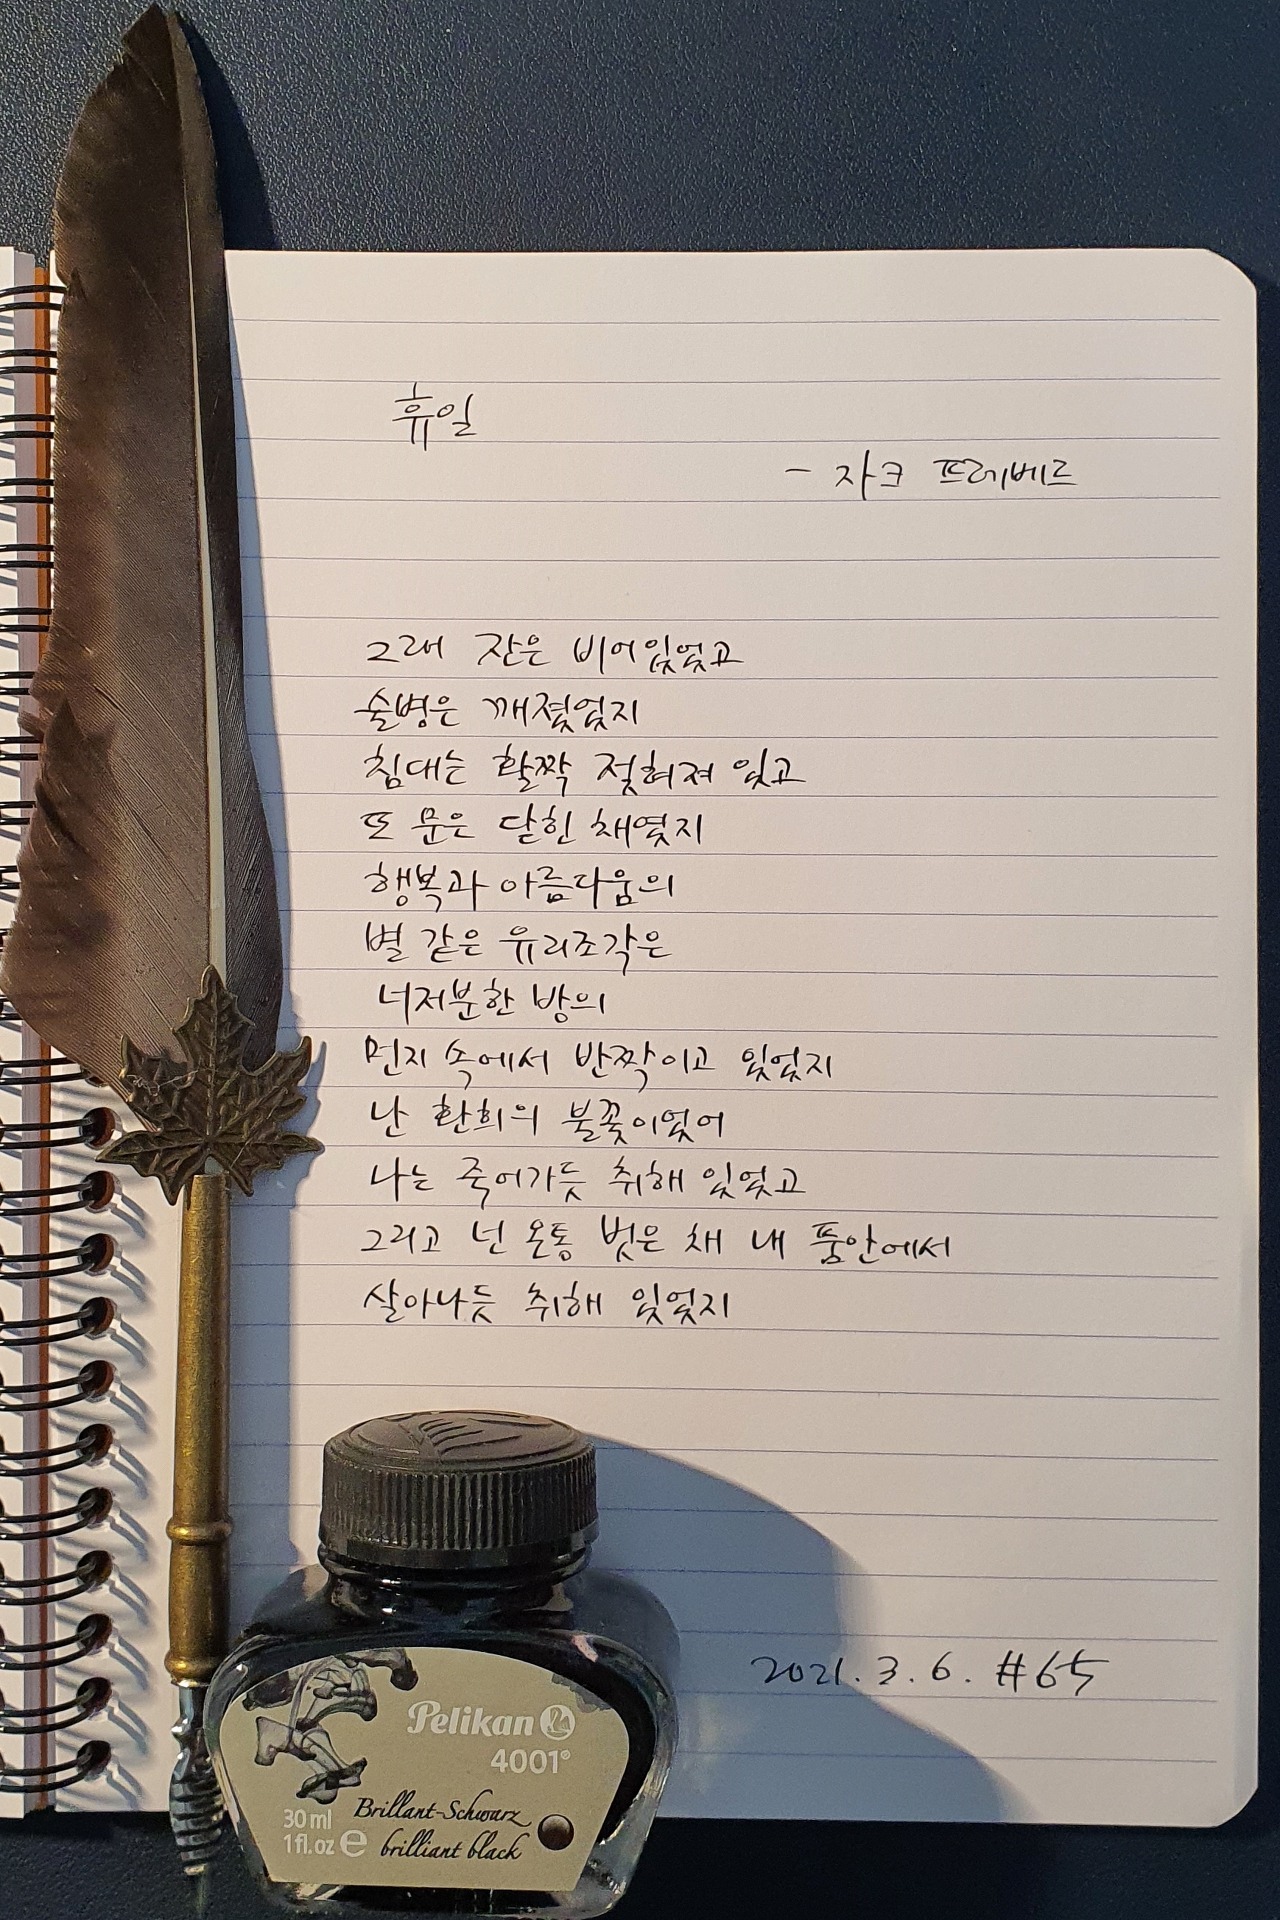 휴일
- 자크 프레베르
그래 잔은 비어있었고
술병은 깨졌었지
침대는 활짝 젖혀져 있고
또 문은 닫힌 채였지
행복과 아름다움의
별 같은 유리조각은
너저분한 방의
먼지 속에서 반짝이고 있었지
난 환희의 불꽃이었어
나는 죽어가듯 취해 있었고
그리고 넌 온통 벗은 채 내 품안에서
살아나듯 취해 있었지
2021. 3. 6. #65
Pelikan
4001®
30 ml
1 fl.oz e
Brillant-Schwarz
brilliant black